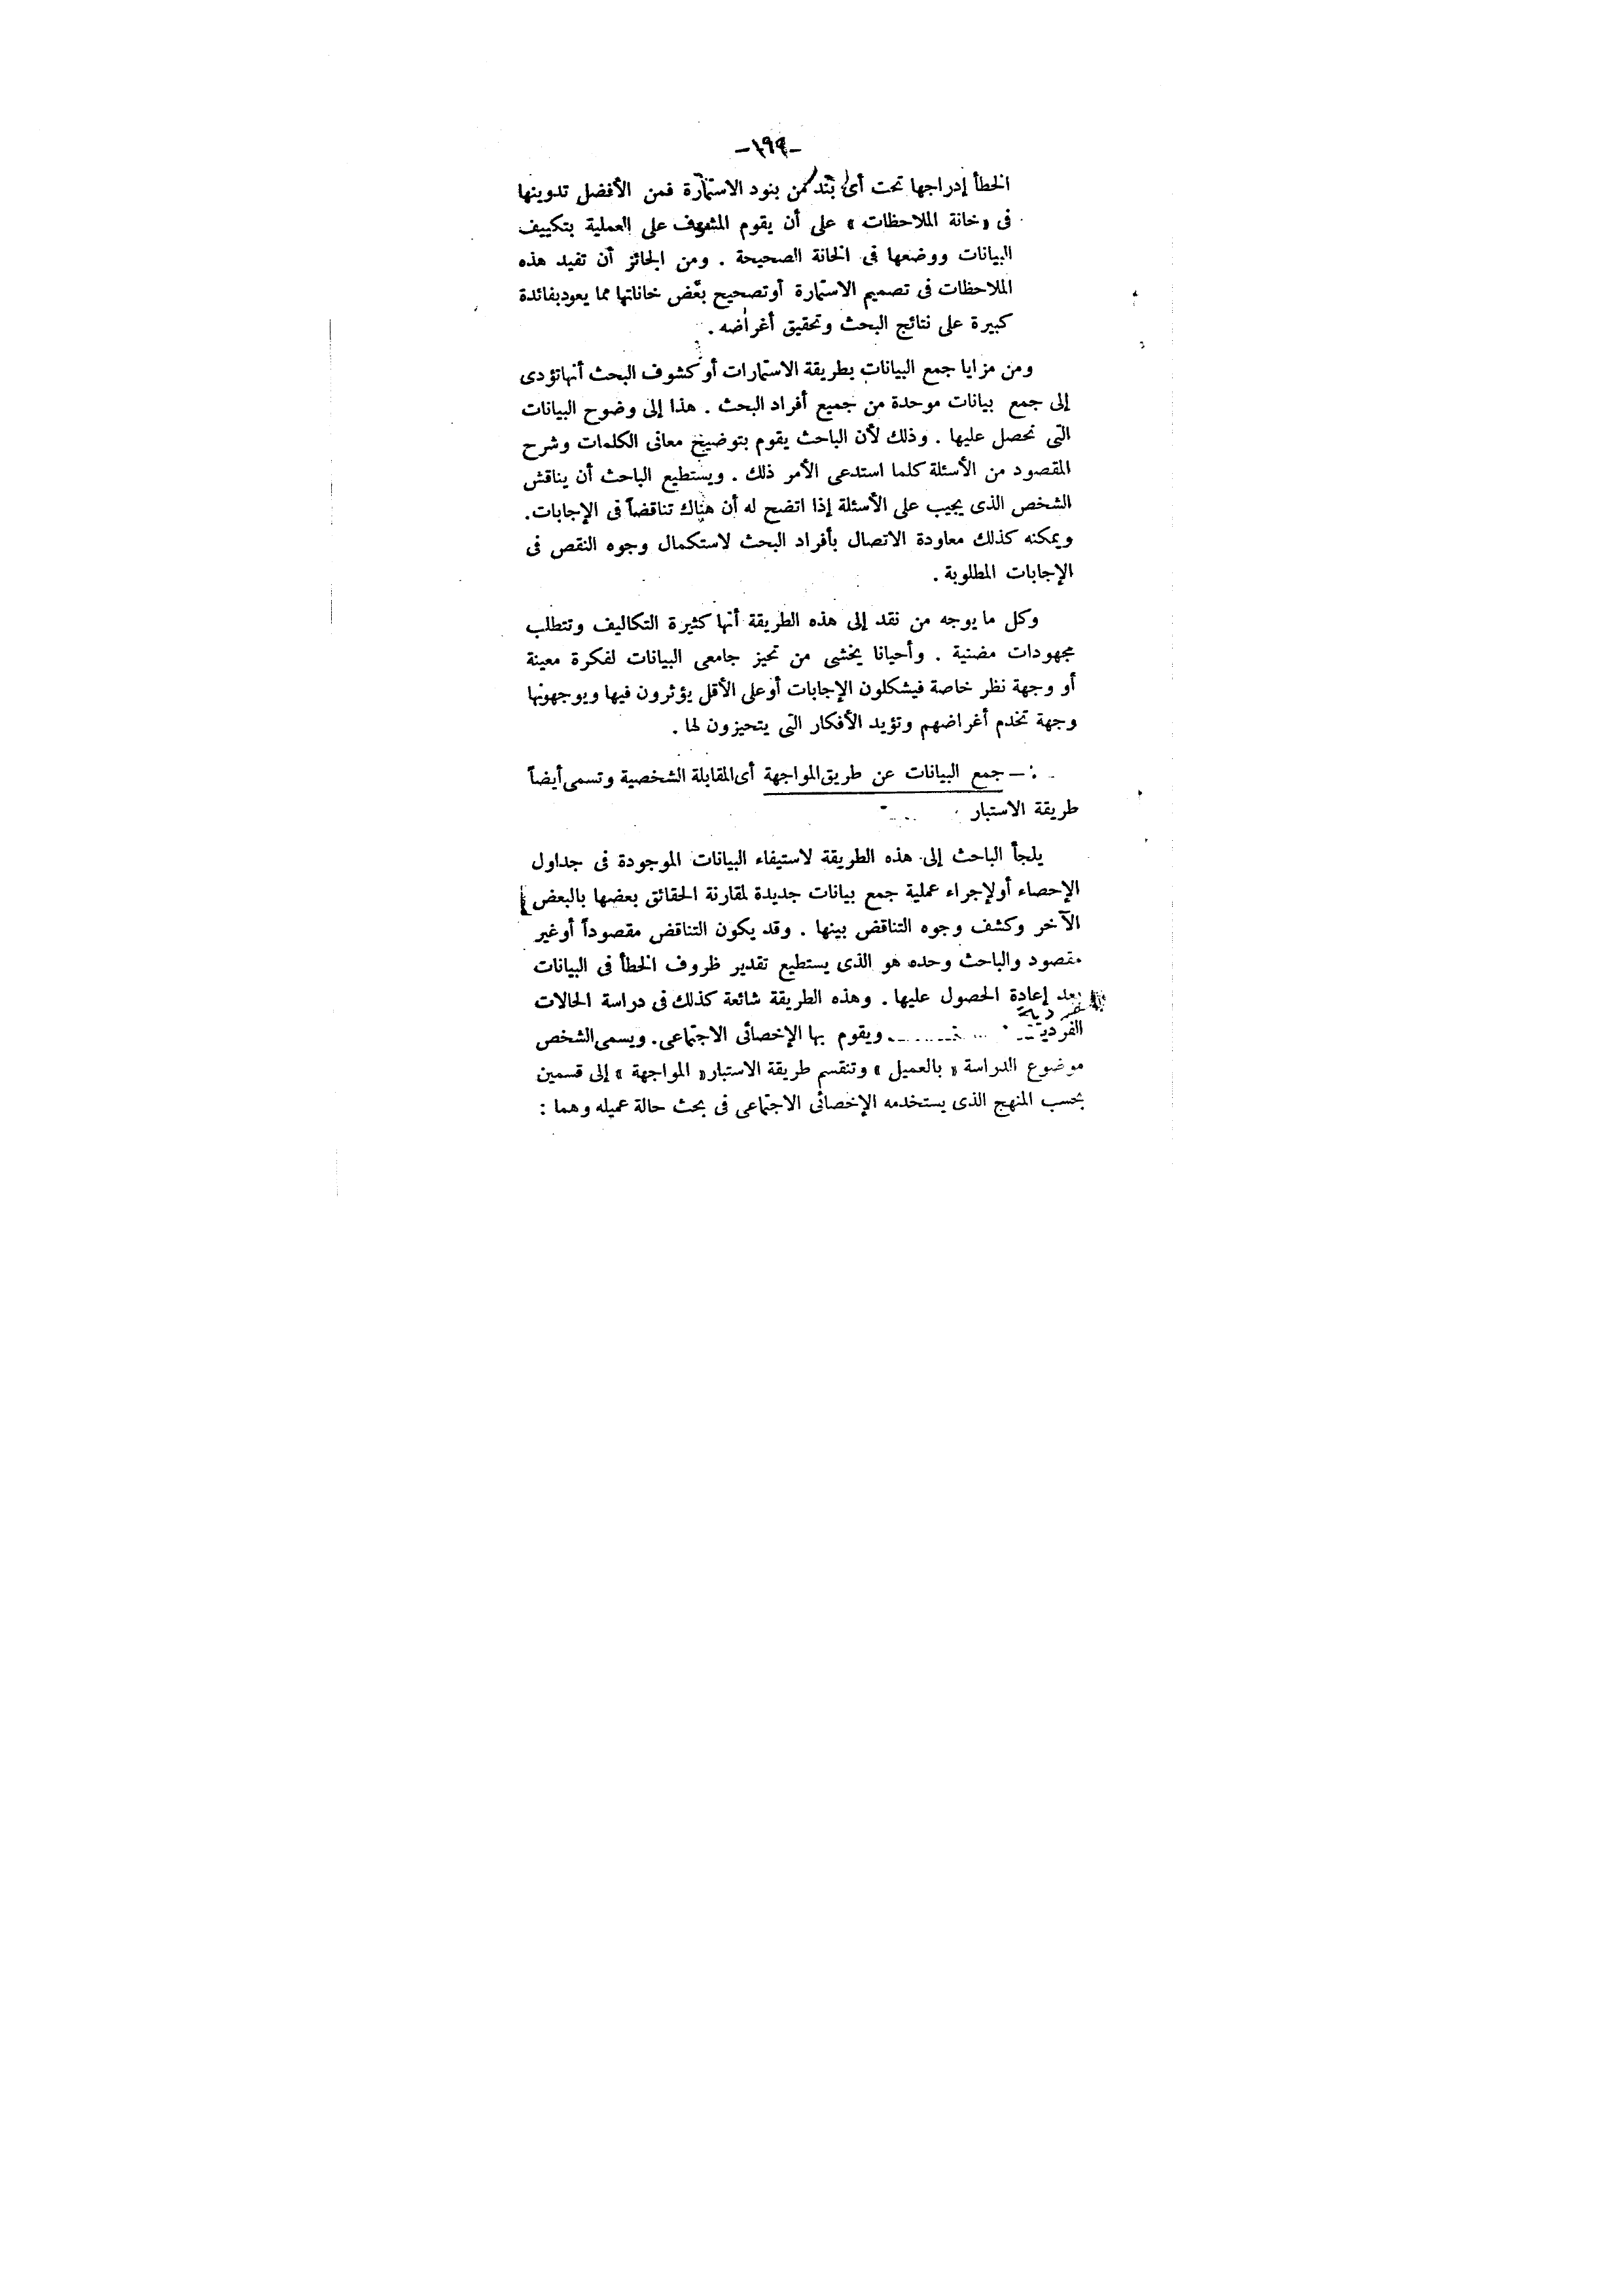 -١٩٩-
الخطأ إدراجها تحت أى بند من بنود الاستمارة فمن الأفضل تدوينها
فى «خانة الملاحظات» على أن يقوم المشرف على العملية بتكييف
البيانات ووضعها فى الخانة الصحيحة . ومن الجائز أن تفيد هذه
الملاحظات فى تصميم الاستمارة أو تصحيح بعض خاناتها مما يعود بفائدة
كبيرة على نتائج البحث وتحقيق أغراضه .
ومن مزايا جمع البيانات بطريقة الاستمارات أو كشوف البحث أنها تؤدى
إلى جمع بيانات موحدة من جميع أفراد البحث . هذا إلى وضوح البيانات
التى نحصل عليها . وذلك لأن الباحث يقوم بتوضيح معانى الكلمات وشرح
المقصود من الأسئلة كلما استدعى الأمر ذلك . ويستطيع الباحث أن يناقش
الشخص الذى يجيب على الأسئلة إذا اتضح له أن هناك تناقضاً فى الإجابات.
ويمكنه كذلك معاودة الاتصال بأفراد البحث لاستكمال وجوه النقص فى
الإجابات المطلوبة .
وكل ما يوجه من نقد إلى هذه الطريقة أنها كثيرة التكاليف وتتطلب
مجهودات مضنية . وأحيانا يخشى من تحيز جامعى البيانات لفكرة معينة
أو وجهة نظر خاصة فيشكلون الإجابات أو على الأقل يؤثرون فيها ويوجهونها
وجهة تخدم أغراضهم وتؤيد الأفكار التى يتحيزون لها .
— جمع البيانات عن طريق المواجهة أى المقابلة الشخصية وتسمى أيضاً
طريقة الاستبار
يلجأ الباحث إلى هذه الطريقة لاستيفاء البيانات الموجودة فى جداول
الإحصاء أو لإجراء عملية جمع بيانات جديدة لمقارنة الحقائق بعضها بالبعض
الآخر وكشف وجوه التناقض بينها . وقد يكون التناقض مقصوداً أو غير
مقصود والباحث وحده هو الذى يستطيع تقدير ظروف الخطأ فى البيانات
بعد إعادة الحصول عليها . وهذه الطريقة شائعة كذلك فى دراسة الحالات
الفردية ويقوم بها الإخصائى الاجتماعى. ويسمى الشخص
موضوع الدراسة «بالعميل» وتنقسم طريقة الاستبار «المواجهة» إلى قسمين
بحسب المنهج الذى يستخدمه الإخصائى الاجتماعى فى بحث حالة عميله وهما :